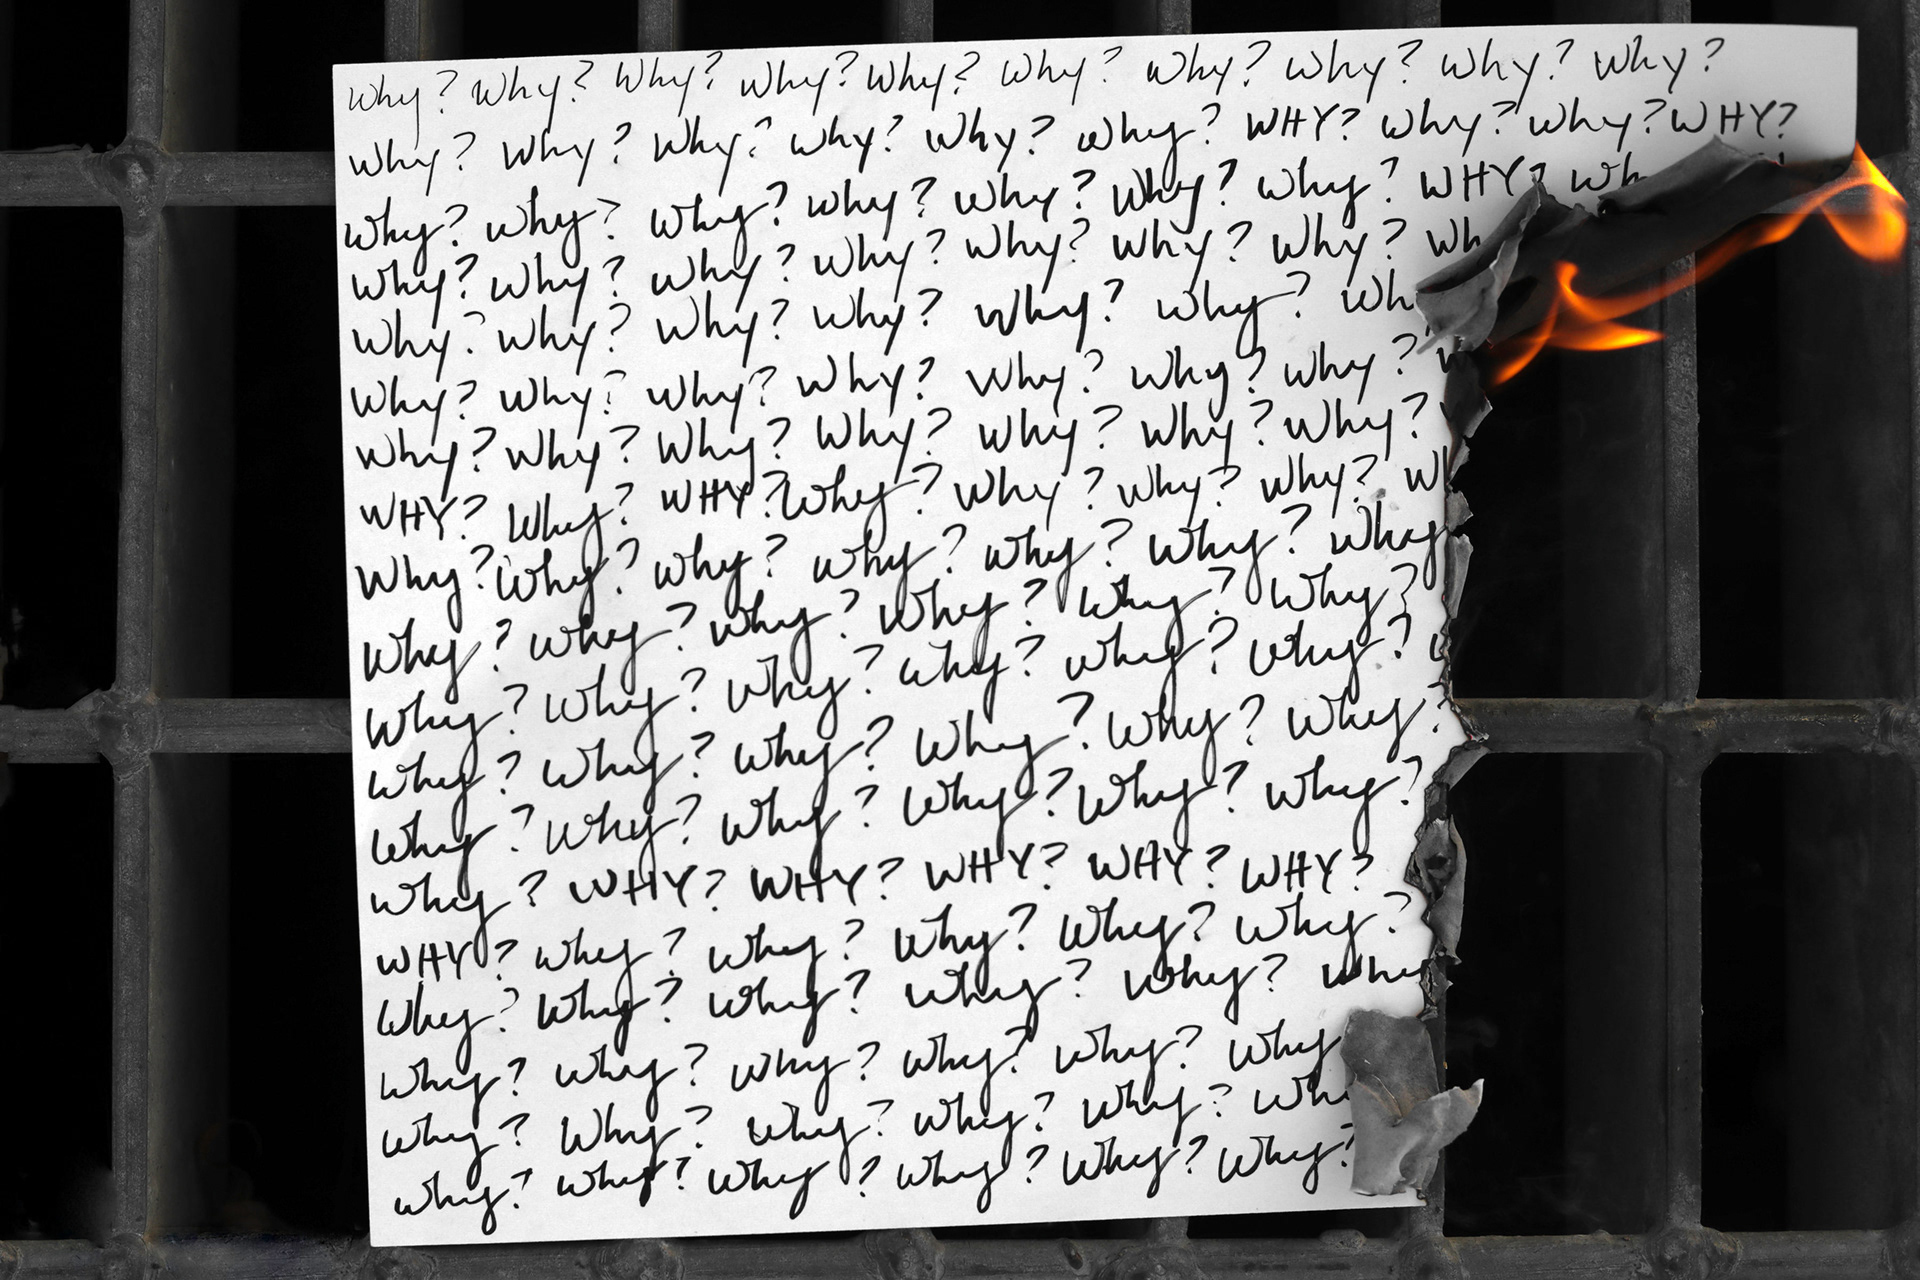 Why? Why? Why? Why? Why? Why? Why? Why? Why? Why?
Why? Why? Why? Why? Why? Why? WHY? Why? Why? WHY?
Why? Why? Why? Why? Why? Why? Why? WHY? Wh
Why? Why? Why? Why? Why? Why? Why? Wh
Why? Why? Why? Why? Why? Why? Wh
Why? Why? Why? Why? Why? Why? Why?
Why? Why? Why? Why? Why? Why? Why?
WHY? Why? WHY? Why? Why? Why? Why? W
Why? Why? Why? Why? Why? Why? Why
Why? Why? Why? Why? Why? Why?
Why? Why? Why? Why? Why? Why?
Why? Why? Why? Why? Why? Why?
Why? Why? Why? Why? Why? Why?
Why? WHY? WHY? WHY? WHY? WHY?
WHY? Why? Why? Why? Why? Why?
Why? Why? Why? Why? Why? Why
Why? Why? Why? Why? Why? Why
Why? Why? Why? Why? Why? Wh
Why? Why? Why? Why? Why? Why?